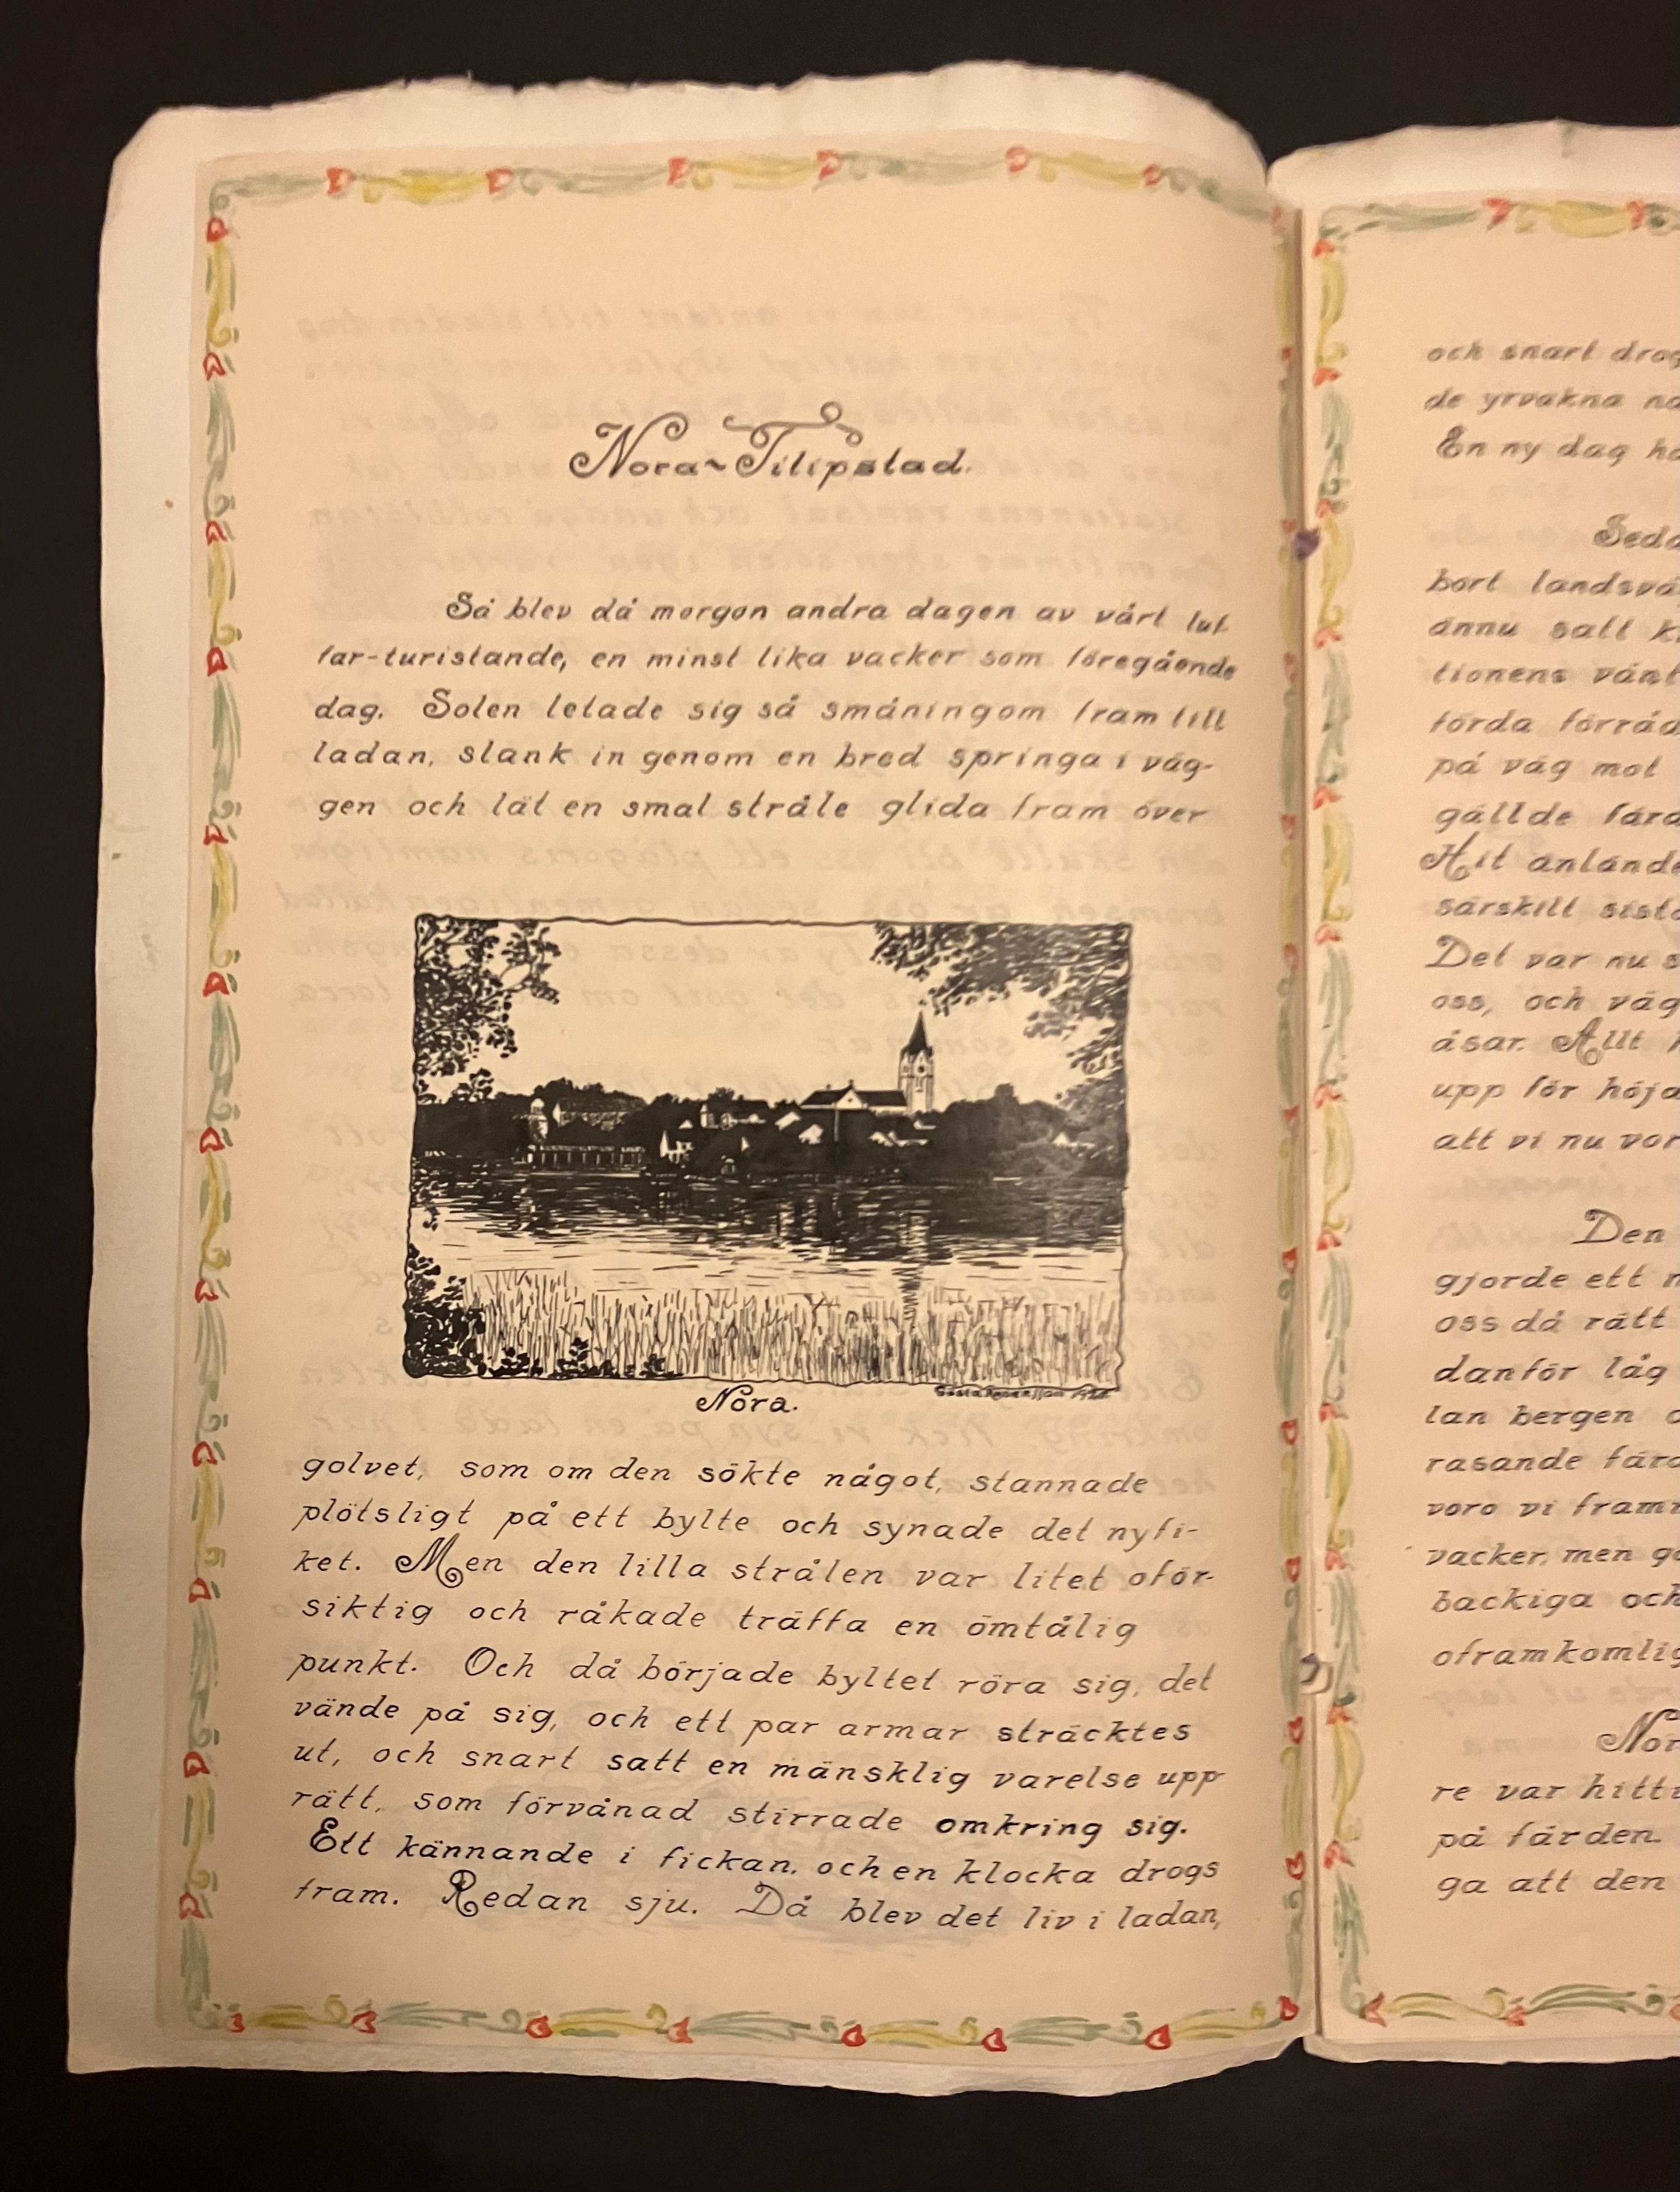 Nora~Filipstad.
Så blev då morgon andra dagen av vårt luf-
far-turistande, en minst lika vacker som föregående
dag. Solen letade sig så småningom fram till
ladan, slank in genom en bred springa i väg-
gen och lät en smal stråle glida fram över
Nora.
golvet, som om den sökte något, stannade
plötsligt på ett bylte och synade det nyfi-
ket. Men den lilla strålen var litet oför-
siktig och råkade träffa en ömtålig
punkt. Och då började byltet röra sig, det
vände på sig, och ett par armar sträcktes
ut, och snart satt en mänsklig varelse upp-
rätt, som förvånad stirrade omkring sig.
Ett kännande i fickan, och en klocka drogs
fram. Redan sju. Då blev det liv i ladan,
och snart drog
de yrvakna na
En ny dag ha
Seda
bort landsvä
ännu satt k
tionens vänt
förda förråd
på väg mot
gällde färd
Hit anlände
särskilt sista
Det var nu s
oss, och väg
åsar. Allt
upp för höjd
att vi nu vor
Den
gjorde ett
oss då rätt
danför låg
lan bergen
rasande färd
voro vi fram
vacker, men go
backiga och
oframkomlig
Nor
re var hitti
på färden.
ga att den